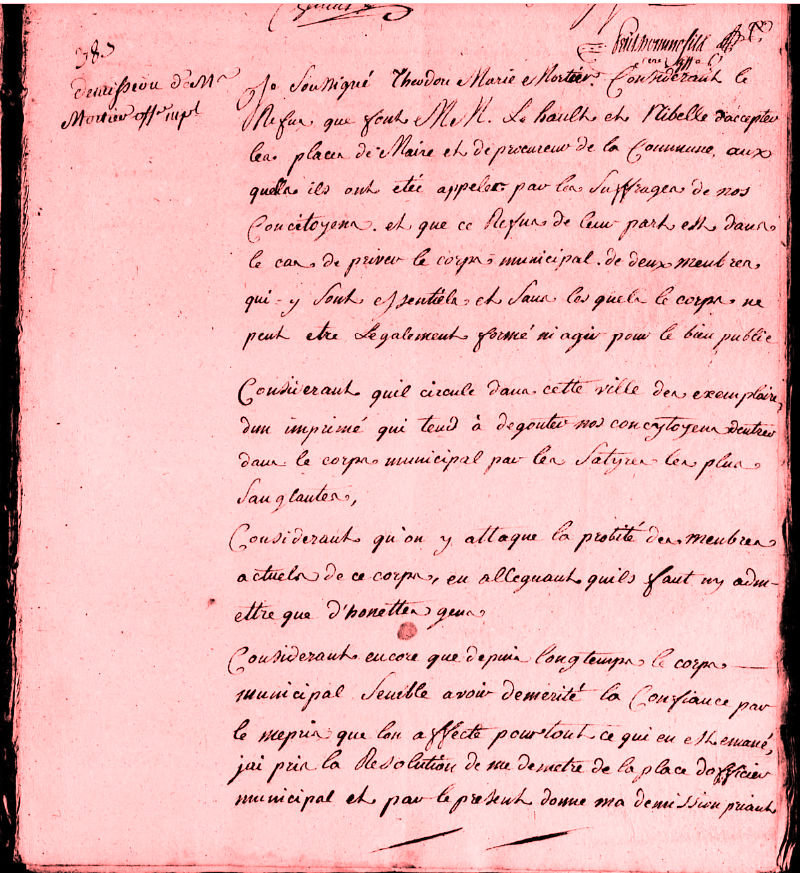 383
demission de Mr
Mortier offr mpl
Je Soussigné Theodore Marie Mortier. Considerant le
Refus que font M.M. Le hault et Ribelle daccepter
les places de Maire et de procureur de la Commune, aux
quells ils ont etée appeler par les Suffrages de nos
Concitoyens. et que ce Refus de leur part est dans
le cas de priver le corps municipal. de deux membres
qui-y Sont essentiels et Sans lesquels le corps ne
peut etre Legalement formé ni agir pour le bien public
Considerant quil circule dans cette ville des exemplaires
dun imprimé qui tend à degouter nos concytoyens dentrer
dans le corps municipal par les Satyres les plus
Sanglantes,
Considerant qu'on y attaque la probité des membres
actuels de ce corps, en alleguant quils faut ny adm-
ettre que d'honettes gens
Considerant encore que depuis longtemps le corps
municipal Semble avoir demerité la Confiance par
le mepris que lon affecte pour tout ce qui en est emané,
jai pris la Resolution de me demetre de la place dofficier
municipal et par le present donne ma demission priant